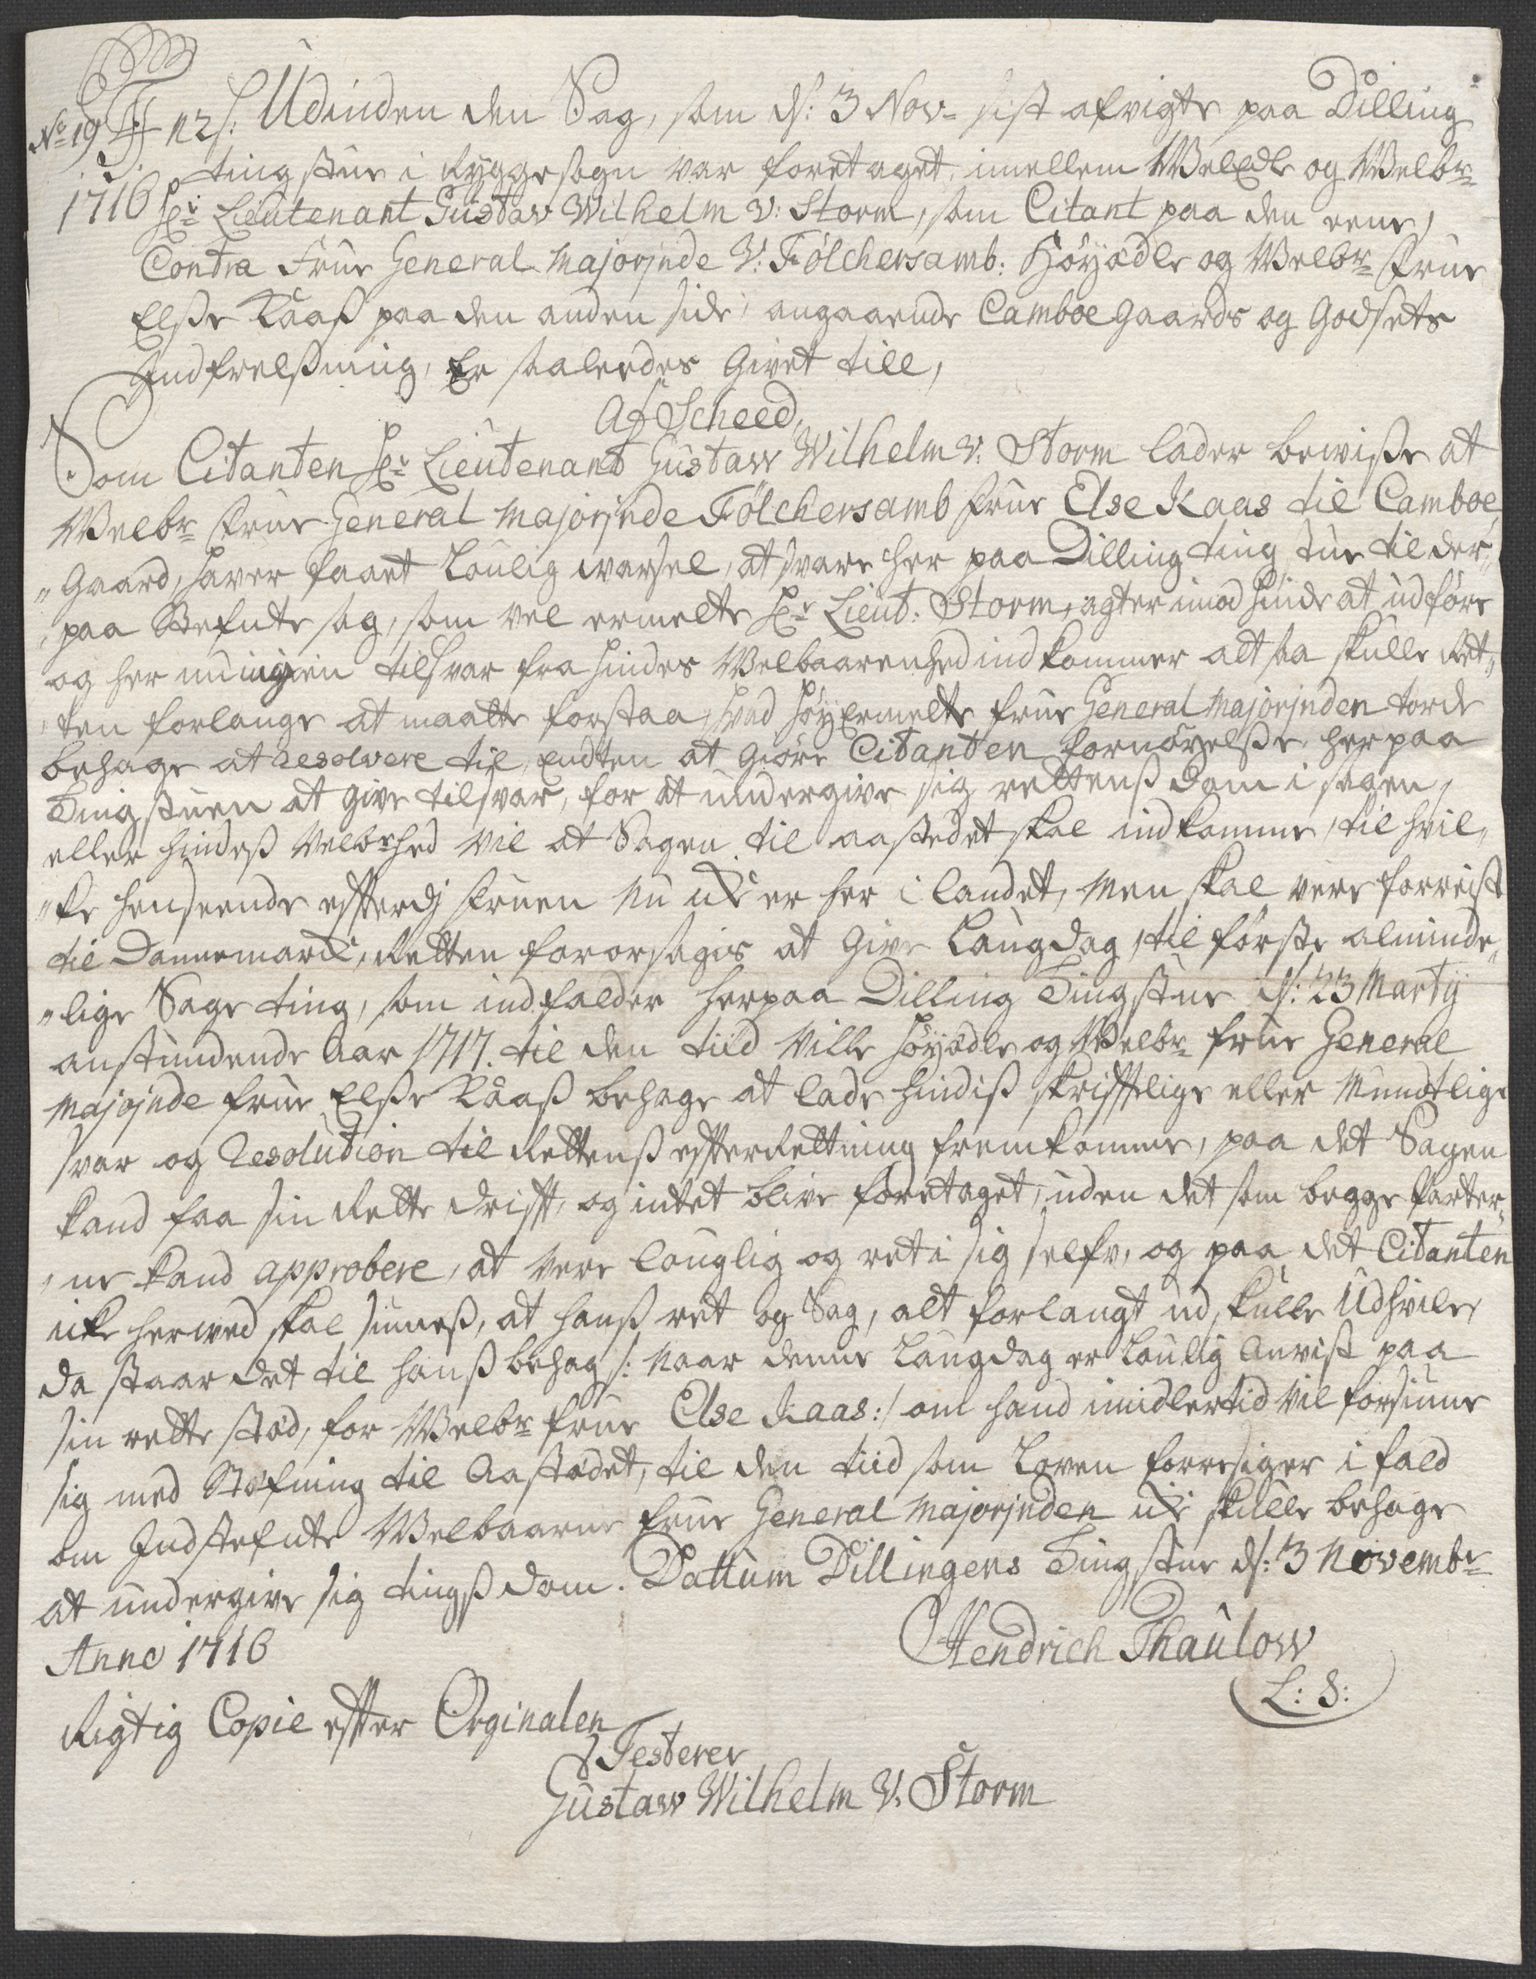 No 19
1716
Udinden den Sag, som ds: 3 Nov. sist afvigte paa Dilling
tingstue i Ryggesogn var foretaget imellem WelEdle og Welbr
Hr Lieutenant Gustav Wilhelm v: Storm, som Citant paa den eene,
Contra Frue General Majorjnde V: Fölchersamb: Höyædle og Welbr Frue
Elsse Kaass paa den anden side, angaaende Camboe Gaards og Godsets
Indfrelssning, Er saaledes Givet till,
AfScheed,
Som Citanten Hr Lieutenant Gustaw Wilhelm v. Storm lader bewisse at
Welbr Frue General Majorjnde Fölchersamb frue Else Kaas til Camboe
„Gaard, haver faaet Loulig warsel, at svare her paa Dilling ting stue til der„
„paa Stefnte sag, som vel ermelte Hr Lieut: Storm, agter imod hinde at udföre
og her imod ingen tilsvar fra hindes Welbaarenhed indkommer alt saa skulle Ret„
„ten forlange at maatte forstaa, hvad höyErmelte frue General Majorjnden torde
behage at Resolvere til, Endten at Giöre Citanten fornöyelsse, her paa
Tingstuen at Give tilsvar, for at undergive sig rettenss dom i sagen,
eller hindess Velbrhed vil at Sagen til aastedet skal indkomme, til hvil„
„ke henseende efferdj Fruen Nu ike er her i landet, Men skal vere forreist
til Dannemarck, Retten fororsagis at Give Laugdag, til förste alminde„
„lige Sage ting, som indfalder herpaa Dilling Tingstue ds: 23 Martij
anstundende Aar 1717. til den tiid Ville höyædle og Welbr frue General
Majojnde frue Elsse Kaass behage at lade hindiss skrifftelige eller Mundtlige
svar og Resolution til Rettenss efterRettning fremkomme, paa det Sagen
kand faa sin Rette drifft, og intet blive foretaget, uden det som begge Parter„
„ne kand approbere, at vere louglig og ret i sig selfv, og paa det Citanten
icke herved skal siunness, at hanss ret og Sag, alt forlangt ud, skulle Udhvile,
da staar det til hanss behag /: Naar denne Laugdag er Loulig Anvist paa
sin rette stæd, for Welbr frue Else Kaas :/ om hand imidlertid vil forsiune
sig med Stefning til Aastædet, til den tiid som Loven forresiger i fald
om Indstefnte Welbaarne frue General Majorjnden icke skulle behage
at undergive sig tingss dom. Dattum Dillingens Tingstue ds: 3 Novembr
Anno 1716
Hendrich Thaulow
L: S:
Rigtig Copie effter Orginalen
Testerer
Gustaw Wilhelm V. Storm